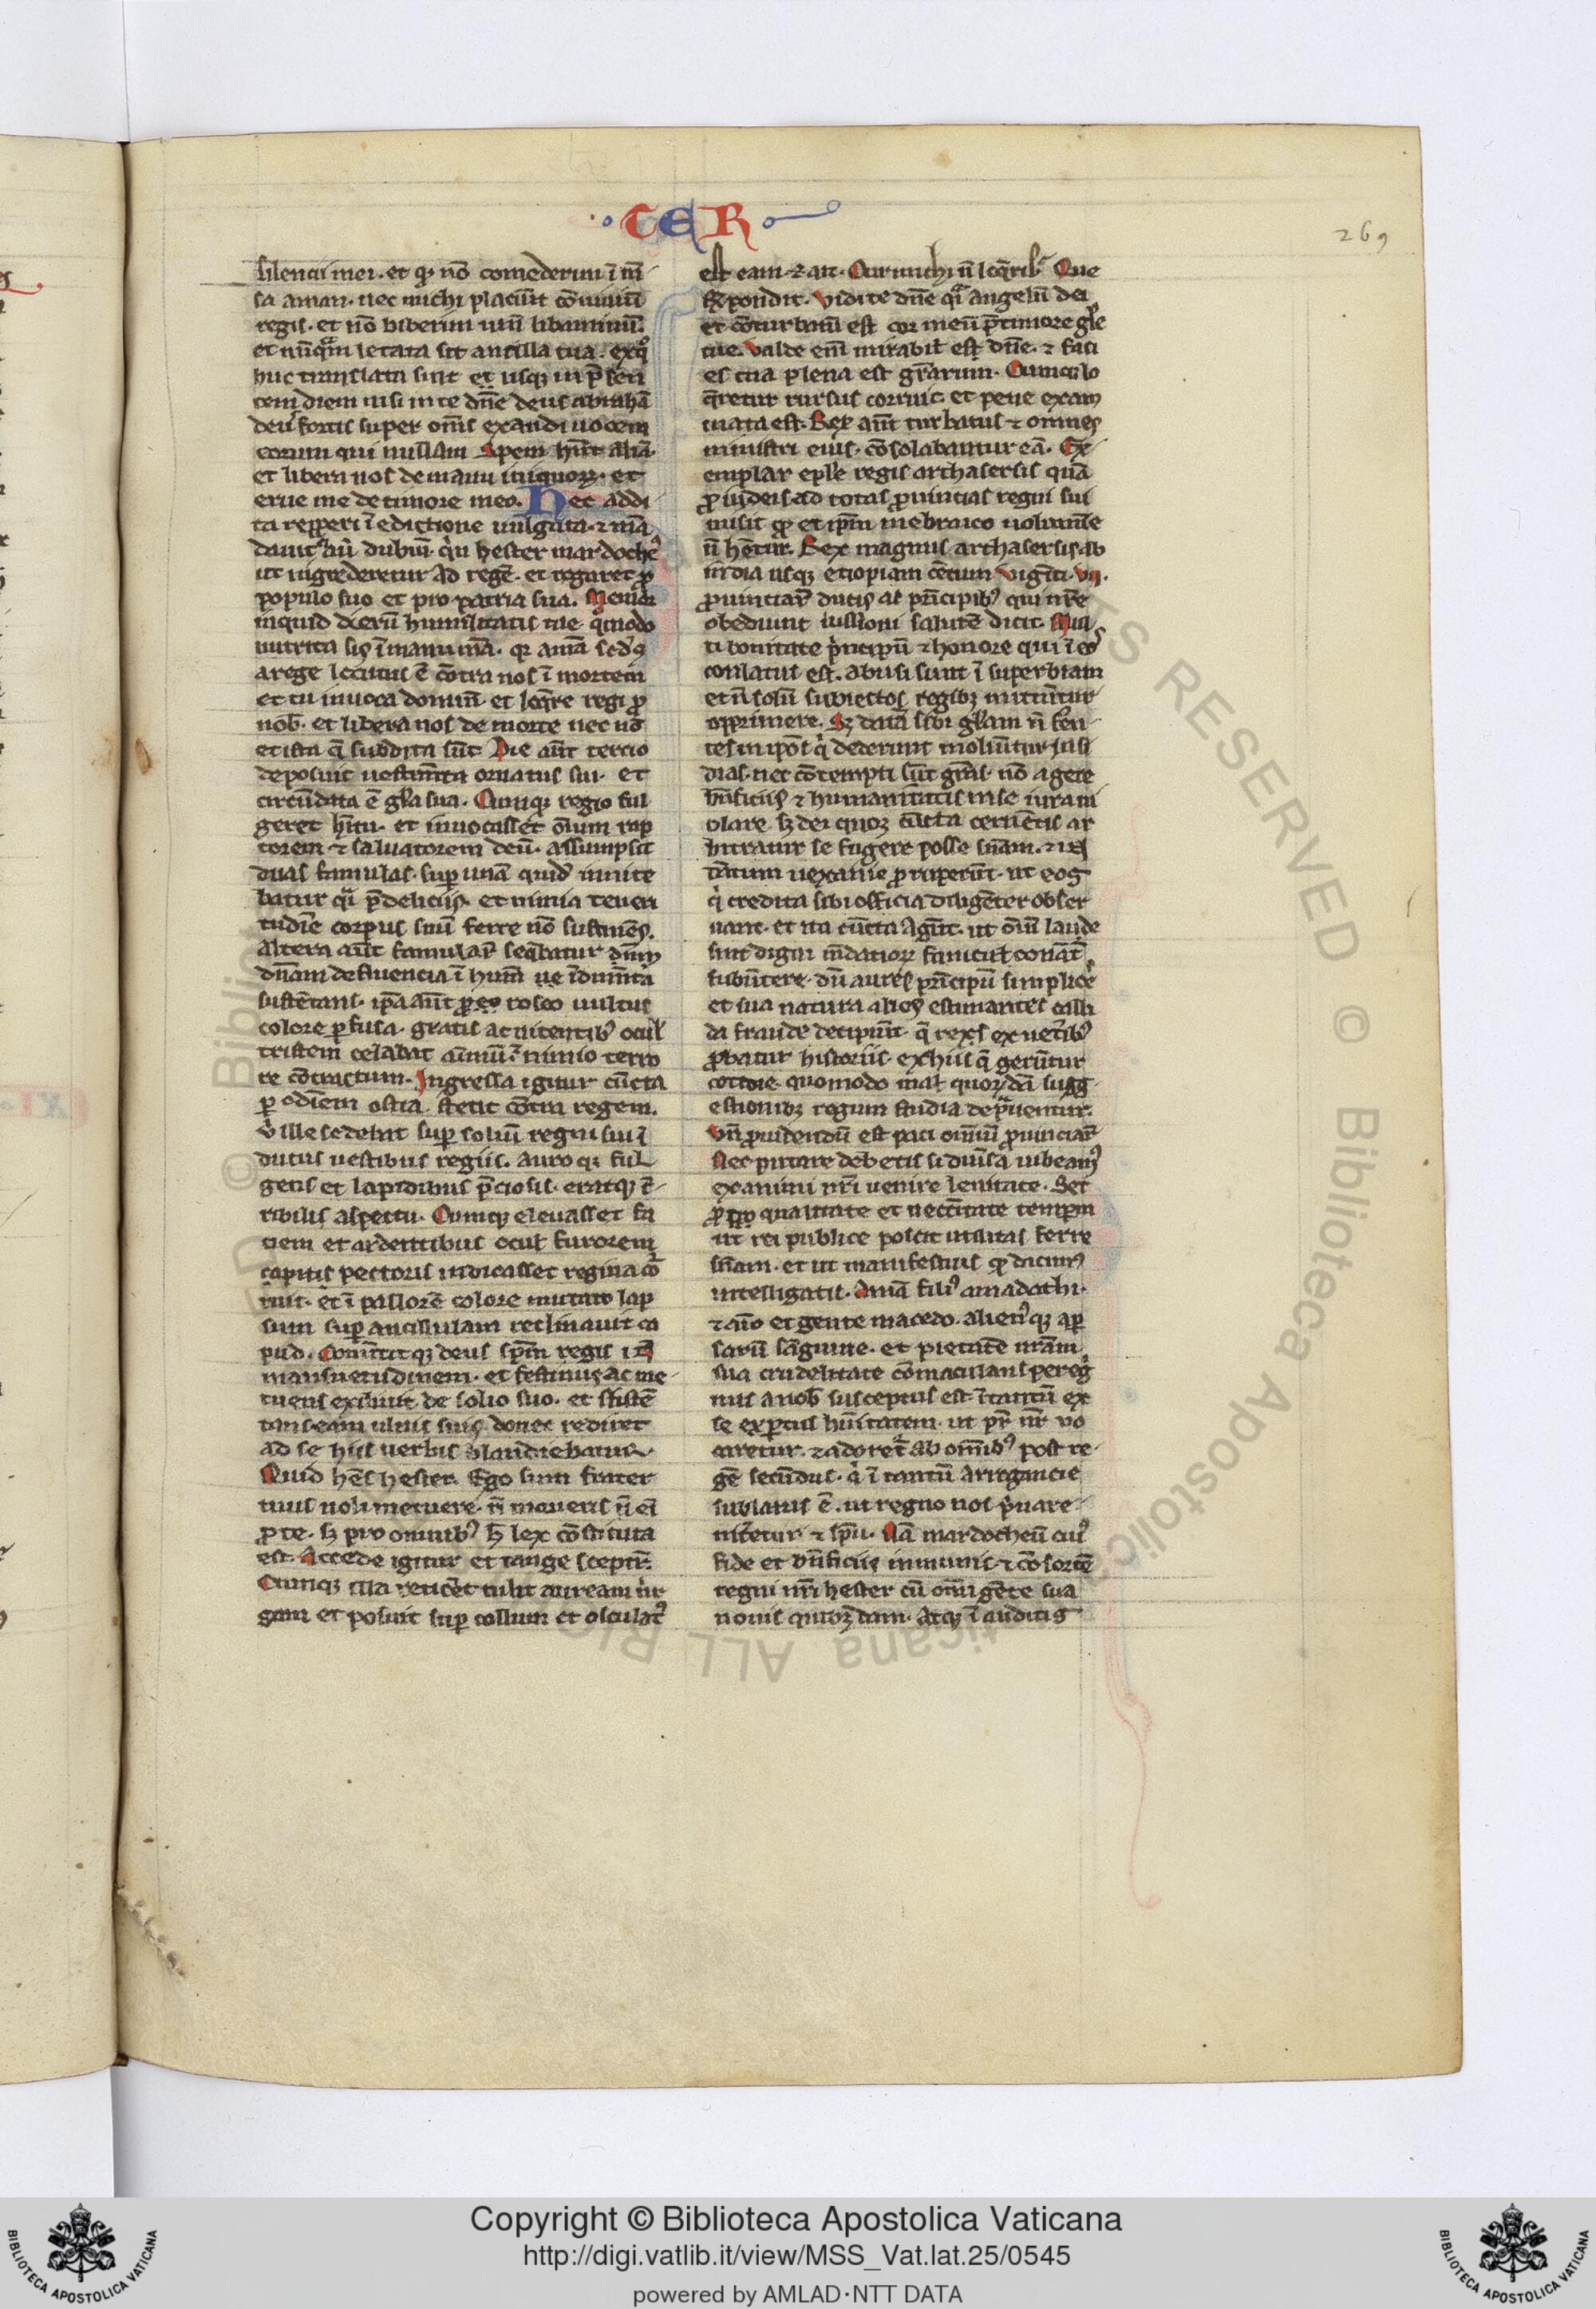 ·TER
269
silencii mei. et ꝙ nō comederim ī mē
sa aman. nec michi placuīt cōuiuiū
regis. et nō biberim uinū libaminū.
et nūq̄m letata sit ancilla tua. exq°
huc translata sum et usqꝫ in p̄sen
tem diem nisi in te dn̄e deus abrahā
deus fortis super om̄s exaudi uocem
eorum qui nullam spem hn̄t aliā.
et libera nos de manu iniquoꝝ. et
erue me de timore meo. Hec addi
ta repperi ī edictione uulgata. ⁊ mā
dauit ei dubiū. qͥn hester mardocheꝰ
ut ingrederetur ad regē. et rogaret ꝓ
populo suo et pro patria sua. Memor
inquid dierū humilitatis tue qͦmodo
nutrita sis ī manu mea. qꝛ amā scd̓s
a rege locutus ē cōtra nos ī mortem
et tu inuoca dominū et loq̄re regi ꝓ
nob̄. et libera nos de morte nec nō
et ista q̄ subdita sūt. Die aūt tercio
deposuit uestimēta ornatus sui. et
circūdata ē gl̄a sua. Cumqꝫ regio ful
geret hītu. et inuocasset oīum rap
torem ⁊ saluatorem deū. assumpsit
duas famulas. suꝑ unā quid̄ innite
batur qͣi p̄ deliciis. et nimia teneri
tudīe corpus suū ferre nō sustinēs.
Altera aūt famulaꝝ seq̄batur dn̄am
defluencia ī humū ue īdumēta
sustētans. ip̄a aūt roseo uultus
colore ꝑfusa. gratis ac nitentibꝰ ocul̄
tristem celabat animū ⁊ nimio terro
re cōtractum. Ingressa igitur cūcta
ꝑ ordīem ostia. stetit cōtra regem.
vͥ ille sedebat suꝑ soliū regni sui ī
dutus uestibus regiis. auro qꝫ ful
gens et lapidibus p̄ciosis. eratqꝫ t̄
ribilis aspectu. Cumqꝫ eleuasset fa
ciem et ardentibus ocul̄ furorem
pectoris indicasset regina cor
ruit. et ī pallorē colore mutato lap
sum suꝑ ancillulam reclinauit ca
pud. Conūtitqꝫ deus sp̄m regis ī
mansuetudinem. et festinus ac me
tuens exiliuit de solio suo. et sustē
tans eam ulnis suis donec rediret
ad se hiis uerbis blandiebatur
Quid hēs hester. Ego sum frater
tuus noli metuere. n̄ morieris n̄ eī
ꝓ te. sꝫ pro omnibꝰ h̄ lex cōstituta
est. Accede igitur et tange sceptrū.
Cumqꝫ illa reticēt tulit auream uir
gam et posuit suꝑ collum et osculatꝰ
est eam. ⁊ ait. Cur michi n̄ loq̄ris. Que
respondit. Vidi te dn̄e qͣi angelū dei
et cōturbatū est cor meū p̄ timore gl̄e
tue. Valde eni mirabil̄ est dn̄e. ⁊ faci
es tua plena est gr̄arum. Cumqꝫ lo
q̄retur rursus corruit. et pene exani
mata est. Rex aūt turbatus ⁊ omnes
ministri eius. cōsolabantur eā. Ex
emplar ep̄le regis archasersis quā
ꝓ iudeis ad totas ꝓuincias regni sui
misit ꝙ et ip̄m in ebraico uolumīe
n̄ hētur. Rex magnus archasersis. ab
india usqꝫ etiopiam cētum uigīti. vij.
ꝓuinciaꝝ ducibꝰ ac p̄ncipibꝰ qui nr̄e
obediunt iussioni salutē dicit. Mul
ti bonitate p̄ncipū ⁊ honore qui ī eos
conlatus est. abusi sunt ī superbiam
et n̄ solū subiectos regibꝫ nitūtur
opprimere. Sꝫ datā sibi gl̄am n̄ feren
tes in ip̄os qͥ dederunt moliūtur insi
dias. nec cōtempti sūt gr̄as. nō agere
bn̄ficiis ⁊ humanitatis in se iura ui
olare. sꝫ dei quoqꝫ cūcta cernētis ar
bitrantur se fugere posse sn̄iam. ⁊ ī
tātum uexanie ꝓruperūt. ut eos
qͥ credita sibi officia diligēter obser
uant. et ita cūcta agūt. ut oīm laude
sint digni mēdacioꝝ cuniculis conātͬ
subūtere. dū aures p̄ncipū simplices
et sua natura alios estimantes calli
da fraude decipiūt. q̄ res ex uet̄ibꝰ
ꝓbatur historiis. ex hiis q̄ gerūtur
cottidie. quomodo mal̄ quorūdā sugg
estionibꝫ regum studia dep̄uentur.
Vn̄ ꝓuidendū est paci omniū ꝓuinciaꝝ
Nec putare debetis si diu̓sa iubeamꝰ
ex animi nr̄i uenire leuitate. Set
ꝓ qualitate et necc̄itate tempꝝ
ut rei publice poscit utilitas ferre
sn̄iam. et ut manifestius ꝙ dicimꝰ
intelligatis. Amā filiꝰ amadathi.
⁊ aīo et gente macedo. alienꝰqꝫ a ꝑ
sarū sāguine. et pietatē nr̄am
sua crudelitate cōmaculans peregͥ
nus a nob̄ susceptus est. ⁊ tantū ex
se exꝑtus hūitatem. ut pr̄ nr̄ uo
caretur. ⁊ adoretͬ ab omībꝰ post re
gē secūdus. qͥ ī tantū arrogancie
sublatus ē. ut regno nos pͥuare
nitetur ⁊ sp̄u. Nā mardocheū cuiꝰ
fide et bn̄ficiis inmunis. ⁊ cōsortē
regni nr̄i hester cū oīm gēte sua
nouis quibꝫdam. atqꝫ ī auditis
Copyright © Biblioteca Apostolica Vaticana
http://digi.vatlib.it/view/MSS_Vat.lat.25/0545
powered by AMLAD·NTT DATA